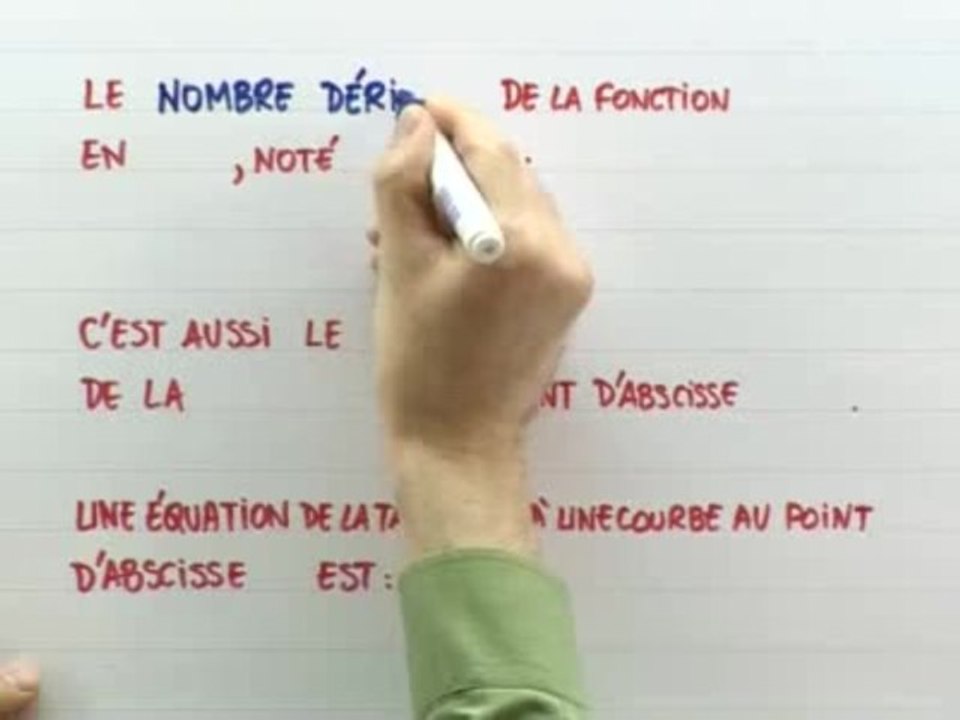 LE NOMBRE DÉRI DE LA FONCTION
EN , NOTÉ .
C'EST AUSSI LE
DE LA NT D'ABSCISSE .
UNE ÉQUATION DE LA TA À UNE COURBE AU POINT
D'ABSCISSE EST :